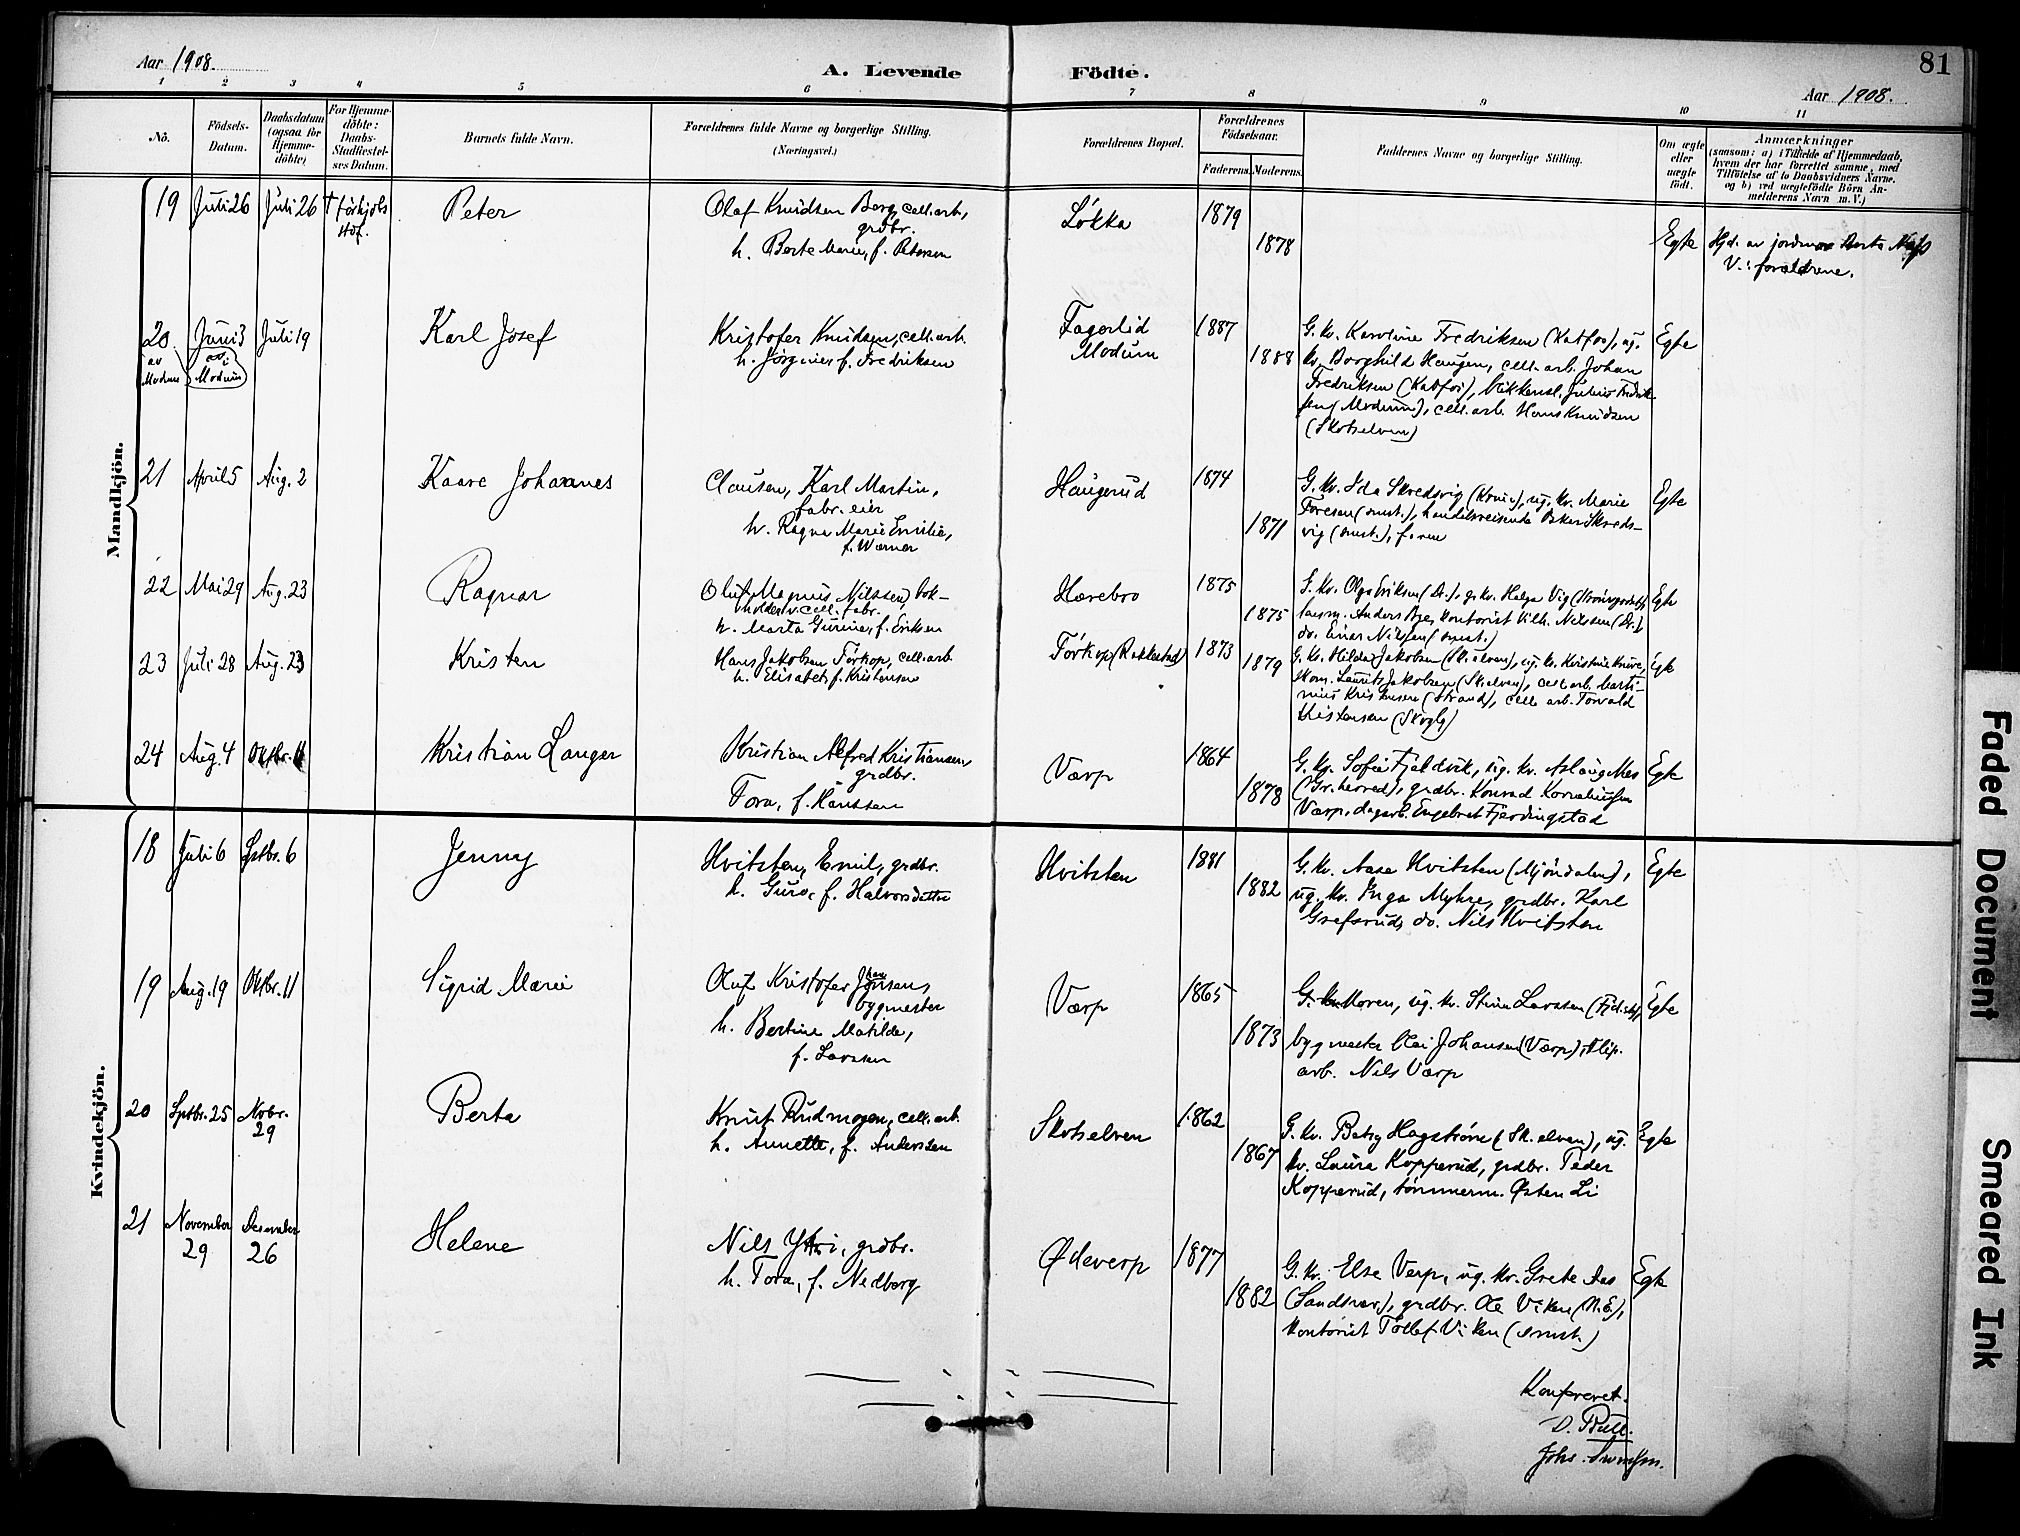 81
Aar 1908.
A. Levende Födte.
Aar 1908.
1 2 3 4 5 6 7 8 9 10 11
Nö.
Födsels-Datum.
Daabsdatum (ogsaa for Hjemme-döbte)
For Hjemme-döbte: Daabs-Stadfæstel-ses Datum.
Barnets fulde Navn.
Forældrenes fulde Navne og borgerlige Stilling.
(Næringsvei.)
Forældrenes Bopæl.
Forældrenes Födselsaar.
Faderens. Moderens.
Faddernes Navne og borgerlige Stilling.
Om ægte eller uægte født.
Anmærkninger
(saasom: a) i Tilfælde af Hjemmedaab, hvem der har forrettet samme, med Tilföielse af to Daabsvidners Navne, og b) ved uægtefödte Börn An-melderens Navn m. V.)
Mandkjön.
19 Juli 26 Juli 26
Peter
Olaf Knudsen Berg, cell.arb., grdbr.
h. Berte Marie, f. Petersen
Løkka
1879
1878
Egte
Hjd. av jordmor Berta
V.: forældrene.
20 av Modum
Juni 3 av i Modum
Juli 19
Karl Josef
Kristofer Knudsen, cell.arb.
h. Jørgine, f. Fredriksen
Fagerlid
Modum
1887
1888
G. kv. Karoline Fredriksen (Katfos), ug.
kv. Borghild Haugen, cell. arb. Johan
Fredriksen (Katfos), Julius Fredrik-
sen (Modum), cell. arb. Hans Knudsen
(Skotselven)
Egte
21 April 5 Aug. 2
Kaare Johannes
Clausen, Karl Martin,
fabr. eier
h. Ragna Marie Emilie,
f. Werner
Haugerud
1874
1871
G. kv. Ida Skredsvig ug. kv. Marie
(smst.), handelsreisende Oskar Skreds-
vig (smst.),
Egte
22 Mai 29 Aug. 23
Ragnar
Oluf Magnus Nilssen, bok-
holder v. cell. fabr.
h. Marta Gurine, f. Eriksen
Hærebro
1875
1875
kv. Olga Eriksen (Dr.), g. kv. Helga Vig
Anders Bye, kontorist Vilh. Nilsen (Dr.),
do. Einar Nilsen (smst.)
Egte
23 Juli 28 Aug. 23
Kristen
Hans Jakobsen Førkop, cell. arb.
h. Elisabet, f. Kristensen
Førkop (Rakkestad)
1873
1879
G. kv. Hilda Jakobsen (Sk.elven), ug. kv. Kristine
Laurits Jakobsen (Sk.elven), cell. arb. Marti-
nius Kristensen (Strand), cell. arb. Torvald
Kristensen
Egte
24 Aug. 4 Oktbr. 11
Kristian Langer
Kristian Alfred Kristiansen,
grdbr.
Tora, f. Hanssen
Værp
1864
1878
G. kv. Sofie Fjeldvik, ug. kv. Aslaug Moe
grdbr. Konrad Korneliussen
Værp, dagarb. Engebret Fjerdingstad
Egte
Kvindekjön.
18 Juli 6 Sptbr. 6
Jenny
Hvitsten, Emil, grdbr.
h. Guro, f. Halvorsdatter
Hvitsten
1881
1882
G. kv. Aase Hvitsten (Mjöndalen),
ug. kv. Inga Myhre, grdbr. Karl
Grefsrud, do. Nils Hvitsten
Egte
19 Aug. 19 Oktbr. 11
Sigrid Marie
Oluf Kristofer Johansen,
bygmester
h. Bertine Matilde,
f. Larssen
Værp
1865
1873
G. Moren, ug. kv. Stina Larssen
bygmester Johansen (Værp), slip.
arb. Nils Værp
Egte
20 Sptbr. 25 Novbr. 29
Berta
Knut Rudmogen, cell. arb.
h. Annette, f. Anderssen
Skotselven
1862
1867
G. kv. Betsy Hagstrøm (Sk. elven), ug.
kv. Laura Kopperud, grdbr. Peder
Kopperud, tømmerm. Østen Li
Egte
21 November 29 Desember 26
Helene
Nils Ytri, grdbr.
h. Tora, f. Nedberg
Ødeverp
1877
1882
G. kv. Else Verp, ug. kv. Grete Aas
(Sandsvær), grdbr. Ole Viken (N.E.),
kontorist Tollef Viken (smst.)
Egte
Konfereret.
D. Bull.
Faded Document
Smeared Ink